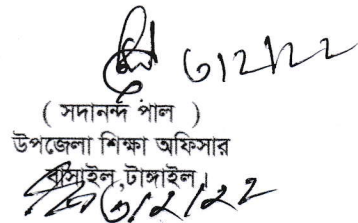 ৩/২/২২
( সদানন্দ পাল )
উপজেলা শিক্ষা অফিসার
বাসাইল,টাঙ্গাইল।
৩/২/২২